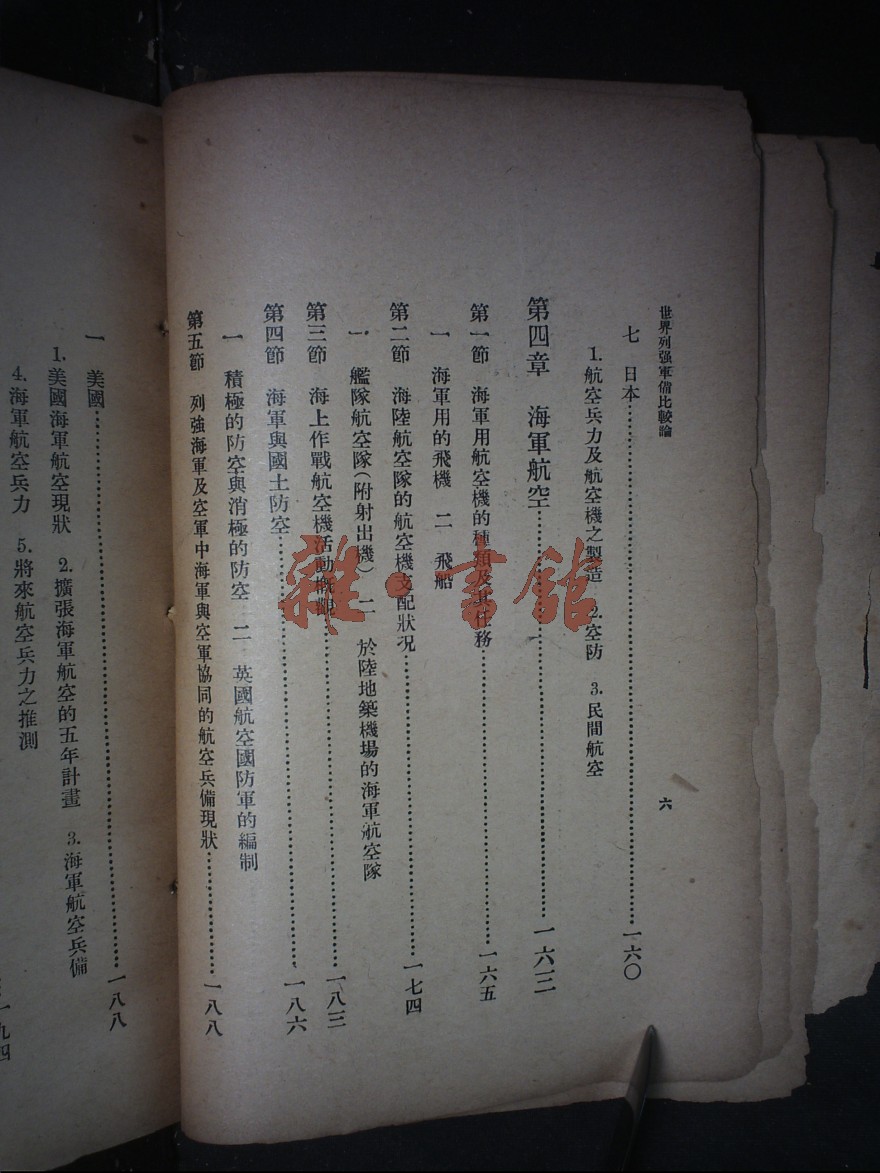 世界列强軍備比較論
六
七　日本……一六〇
1. 航空兵力及航空機之製造　2. 空防　3. 民間航空
第四章　海軍航空……一六三
第一節　海軍用航空機的種類及其任務……一六五
一　海軍用的飛機　二　飛船
第二節　海陸航空隊的航空機支配狀況……一七四
一　艦隊航空隊（附射出機）　二　於陸地築機場的海軍航空隊
第三節　海上作戰航空機活動概觀……一八三
第四節　海軍與國土防空……一八六
一　積極的防空與消極的防空　二　英國航空國防軍的編制
第五節　列強海軍及空軍中海軍與空軍協同的航空兵備現狀……一八八
一　美國……一八八
1. 美國海軍航空現狀　2. 擴張海軍航空的五年計畫　3. 海軍航空兵備
4. 海軍航空兵力　5. 將來航空兵力之推測
一九四
雜·書館